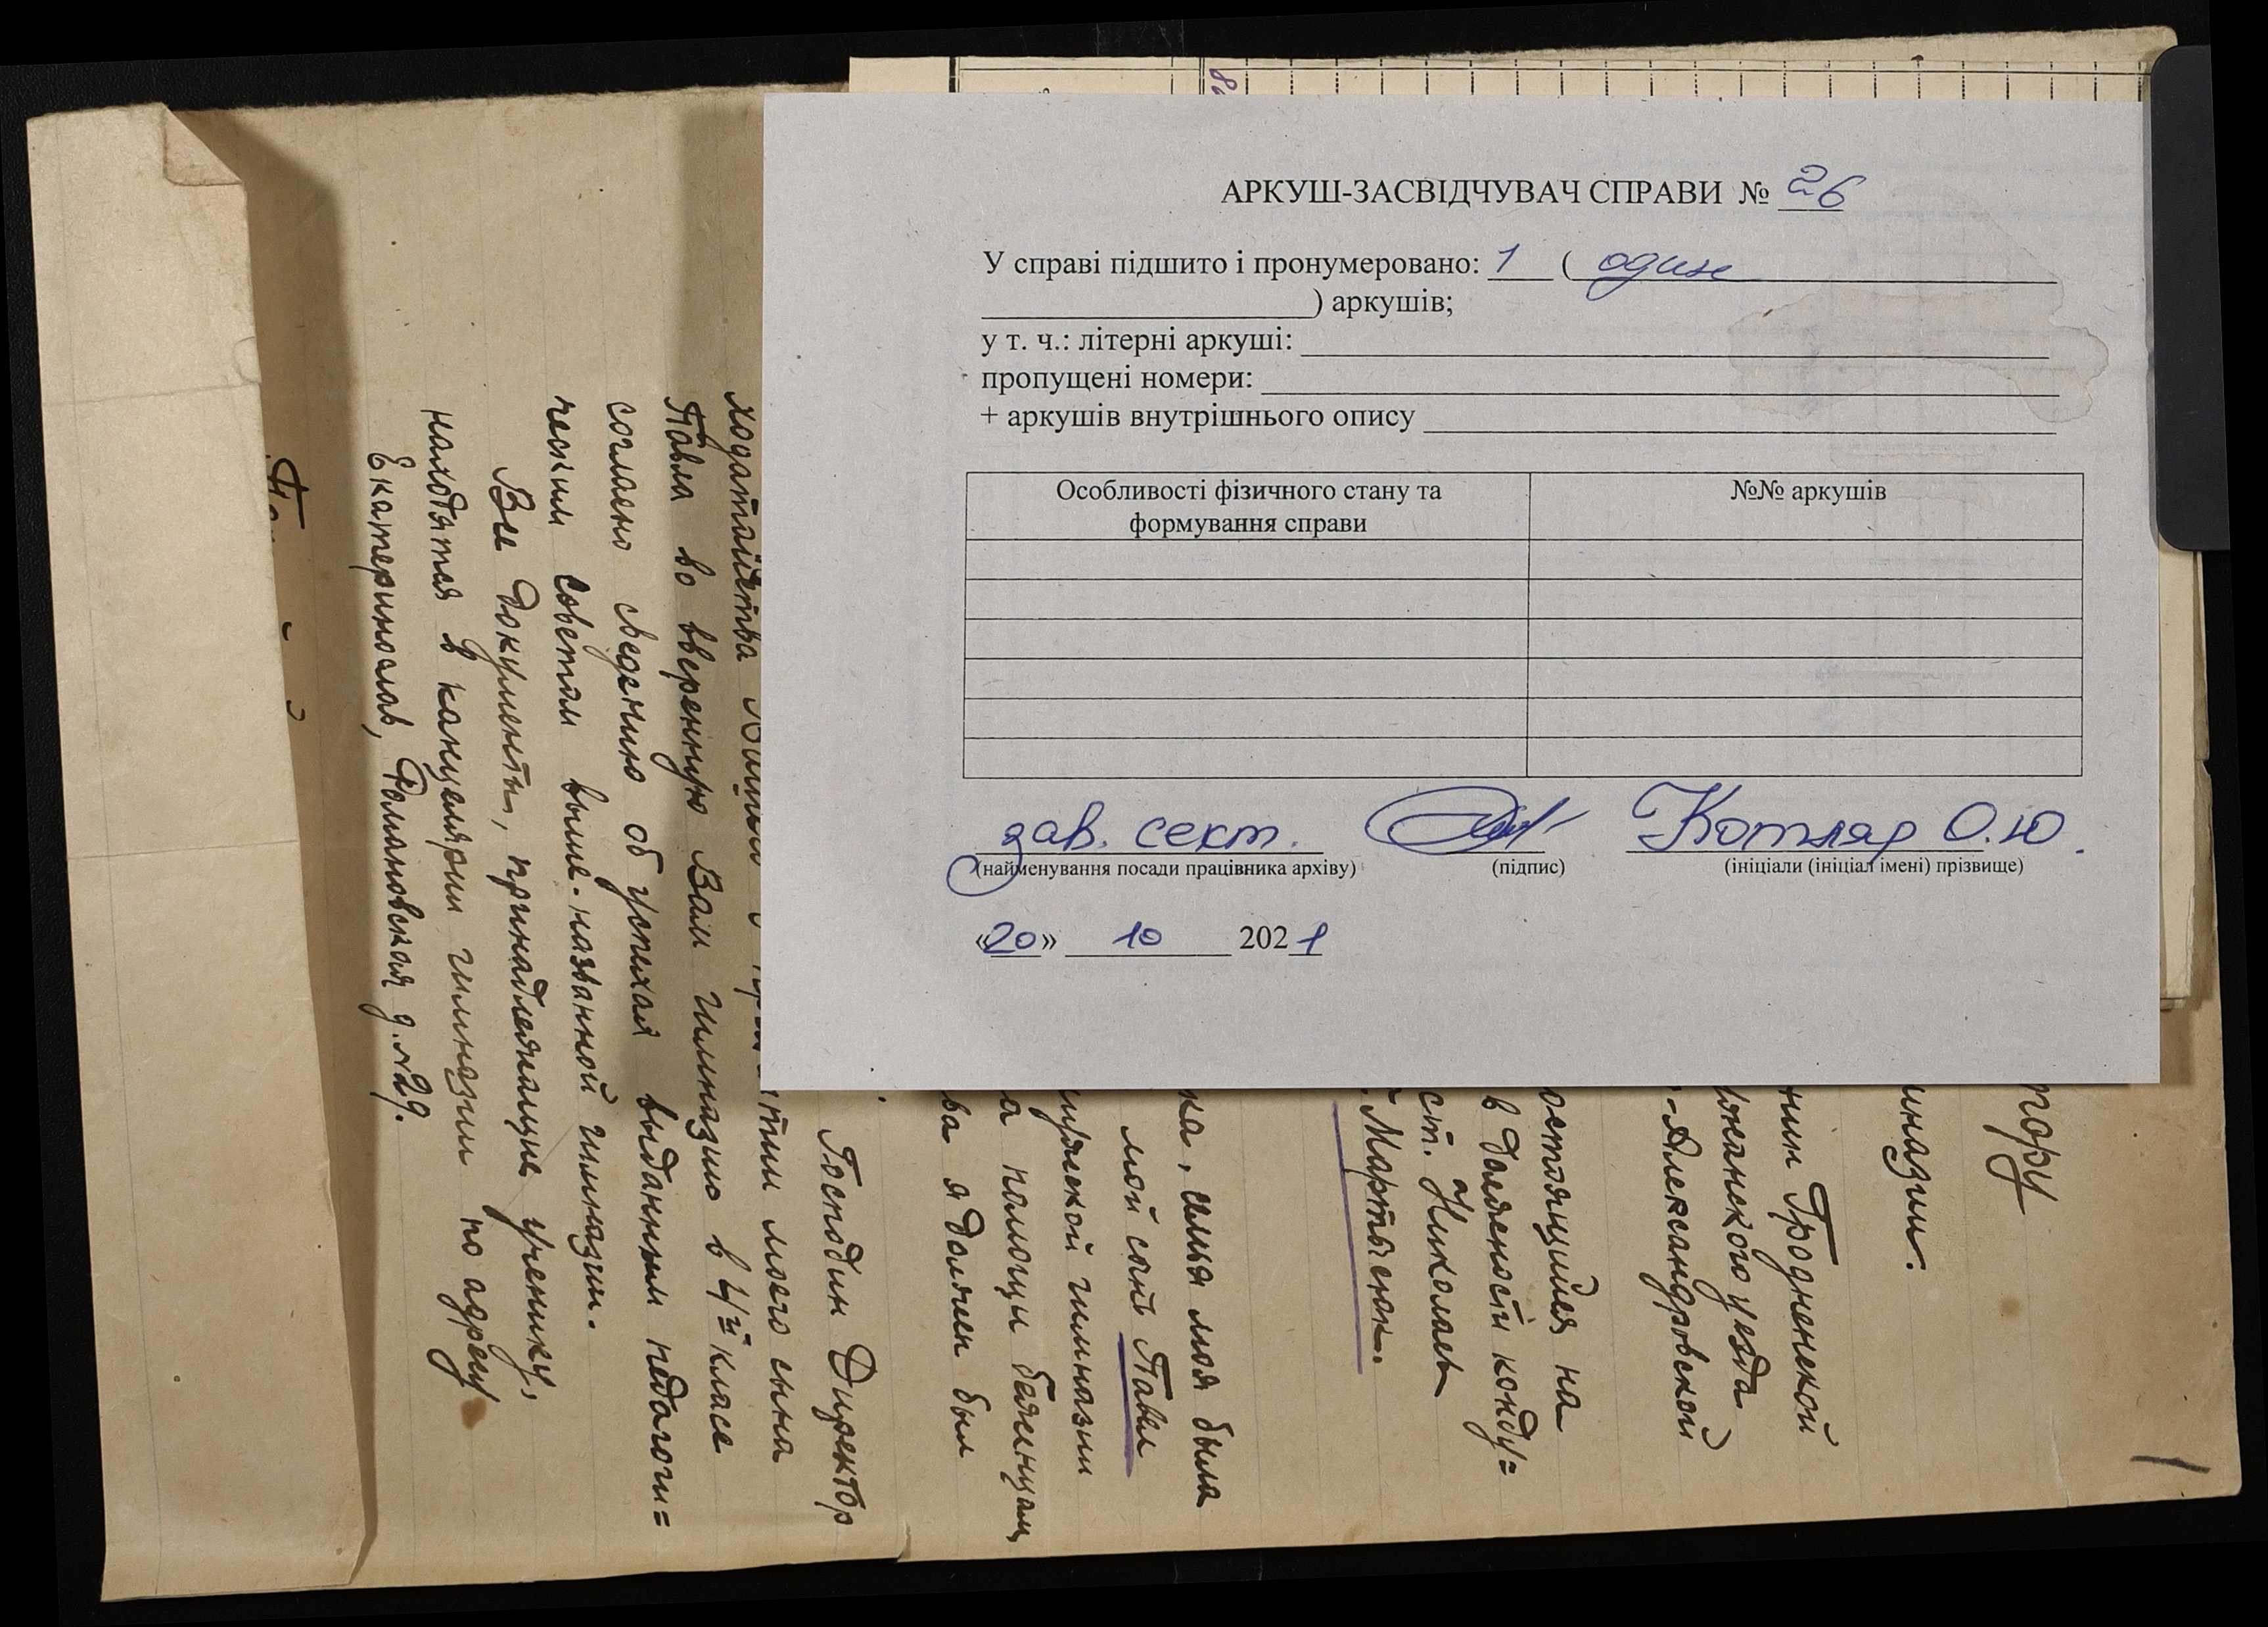 АРКУШ-ЗАСВІДЧУВАЧ СПРАВИ № 26
У справі підшито і пронумеровано: 1 ( один
) аркушів;
у т. ч.: літерні аркуші:
пропущені номери:
+ аркушів внутрішнього опису
Особливості фізичного стану та формування справи
№№ аркушів
зав. сект.
Котляр О.Ю.
(найменування посади працівника архіву)
(підпис)
(ініціали (ініціал імені) прізвище)
«20» 10 2021
тору
иназии.
нин Гродненской
уезда
-Александровской
остоящийся на
в должности конду=
ст. Николаев
Мартысюк.
ка, семья моя была
мой сын Павел
гимназии
а помощи беженцам
ва я должен был
Господин Директор
ходатайства
тии моего сына
Павла во вверенную Вам гимназию в 4й класс
согласно сведению об успехах выданным педагоги=
ческим советом выше-названной гимназии.
Все документы, принадлежащие ученику,
находятся в канцелярии гимназии по адресу
Екатеринослав, Романовская д. №29.